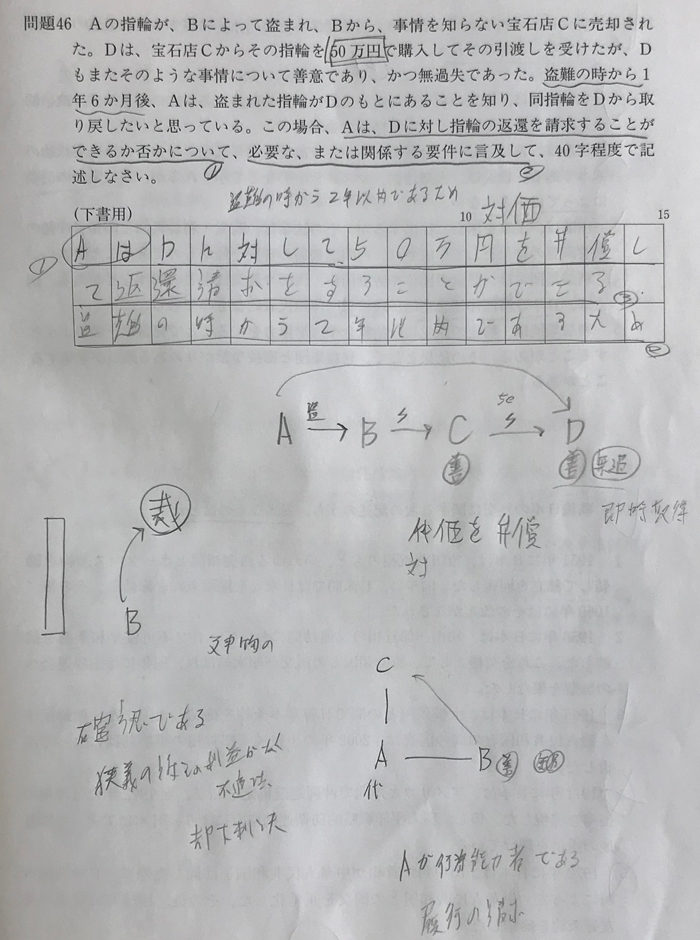 問題46　Aの指輪が、Bによって盗まれ、Bから、事情を知らない宝石店Cに売却され
た。Dは、宝石店Cからその指輪を50万円で購入してその引渡しを受けたが、D
もまたそのような事情について善意であり、かつ無過失であった。盗難の時から1
年6か月後、Aは、盗まれた指輪がDのもとにあることを知り、同指輪をDから取
り戻したいと思っている。この場合、Aは、Dに対し指輪の返還を請求することが
できるか否かについて、必要な、または関係する要件に言及して、40字程度で記
述しなさい。
① ②
盗難の時から2年以内であるため
(下書用) 10 対価 15
① AはDに対して50万円を弁償し
て返還請求をすることができる ③
盗難の時から2年以内であるため ②
A 盗 B C 50 D
善 善 無過
即時取得
裁
代価を弁償
対
B
文中の
C
右記である
狭義の訴えの利益がなく
A B 善
不適法
代
却下判決
Aが行為能力者である
履行の請求